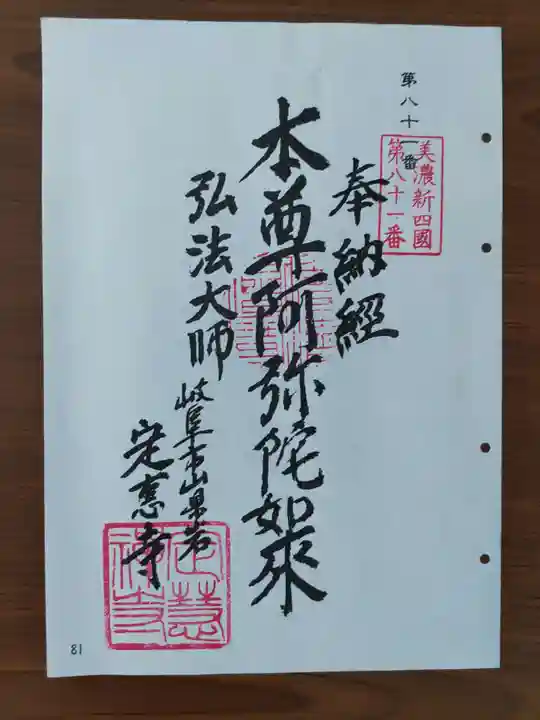 第八十一番
美濃新四國
第八十一番
奉納經
本尊阿弥陀如来
弘法大師
岐阜市山県岩
定恵寺
定慧
禅寺
81